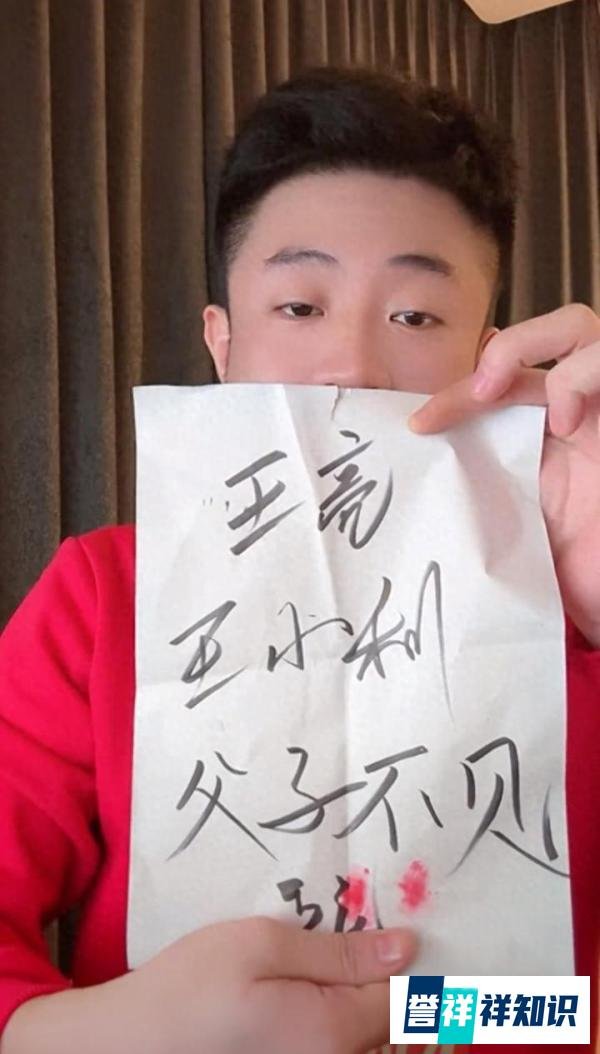 王亮
王小利
父子不见
誉祥祥知识